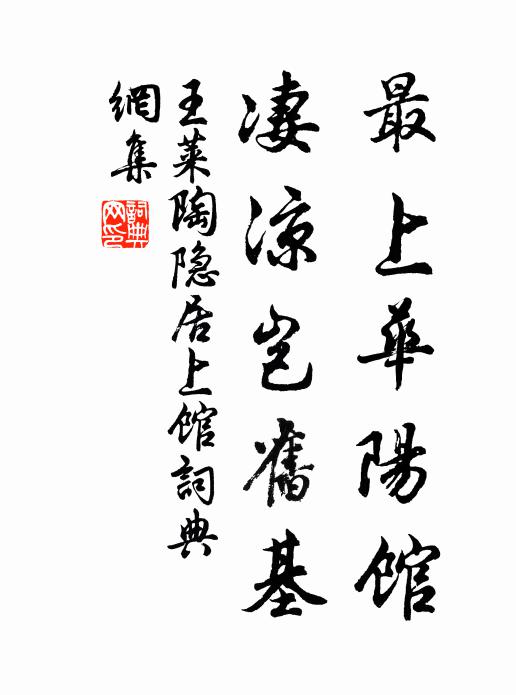 最上華陽館
淒涼豈舊基
王萊陶隐居上館詞典
網集
詞典
网印